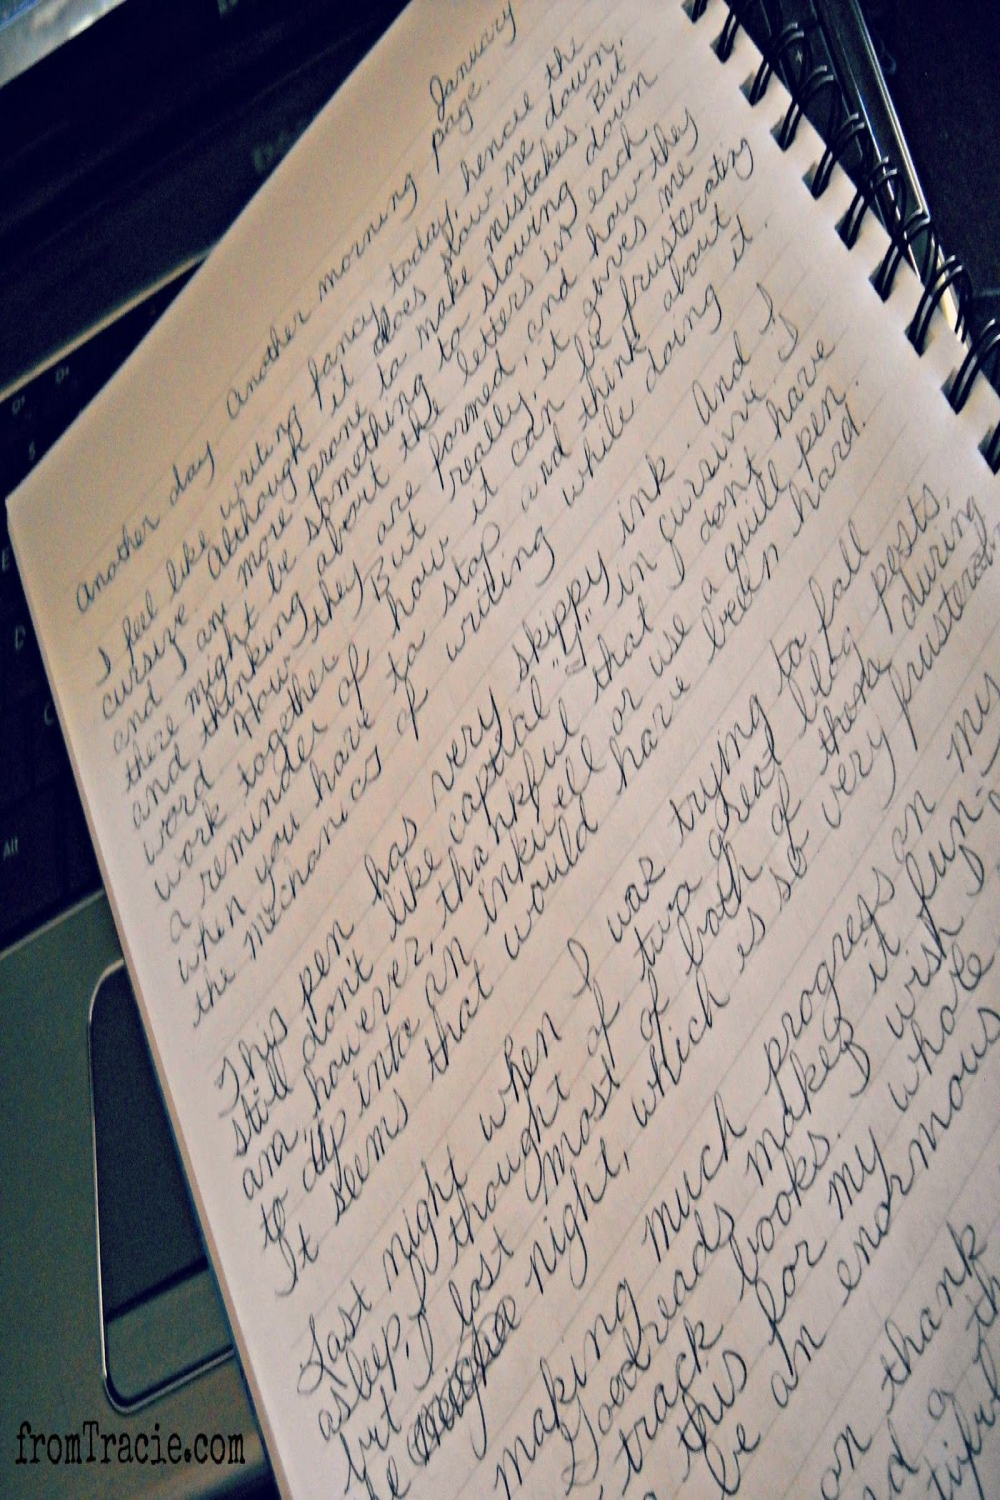 January
Another day another morning page.
I feel like writing fancy today, hence the
cursive. Although it does slow me down,
and I am more prone to make mistakes. But
there might be something to slowing down
and thinking about the letters in each
word. How they are formed, and how they
work together. But really, it gives me
a reminder of how it can be frusterating
when you have to stop and think about
the mechanics of writing while doing it.
This pen has very skippy ink. And I
still don't like capital "I" in cursive. I
am, however, thankful that I don't have
to dip into an inkwell or use a quill pen.
It seems that would have been hard.
Last night when I was trying to fall
asleep, I thought of two great blog posts,
but I lost most of both of them during
the night, which is so very frusterating
making much progress on my
Goodreads makes it fun
track books. I wish I
this for my whole
be an enormous
on thank
fromTracie.com